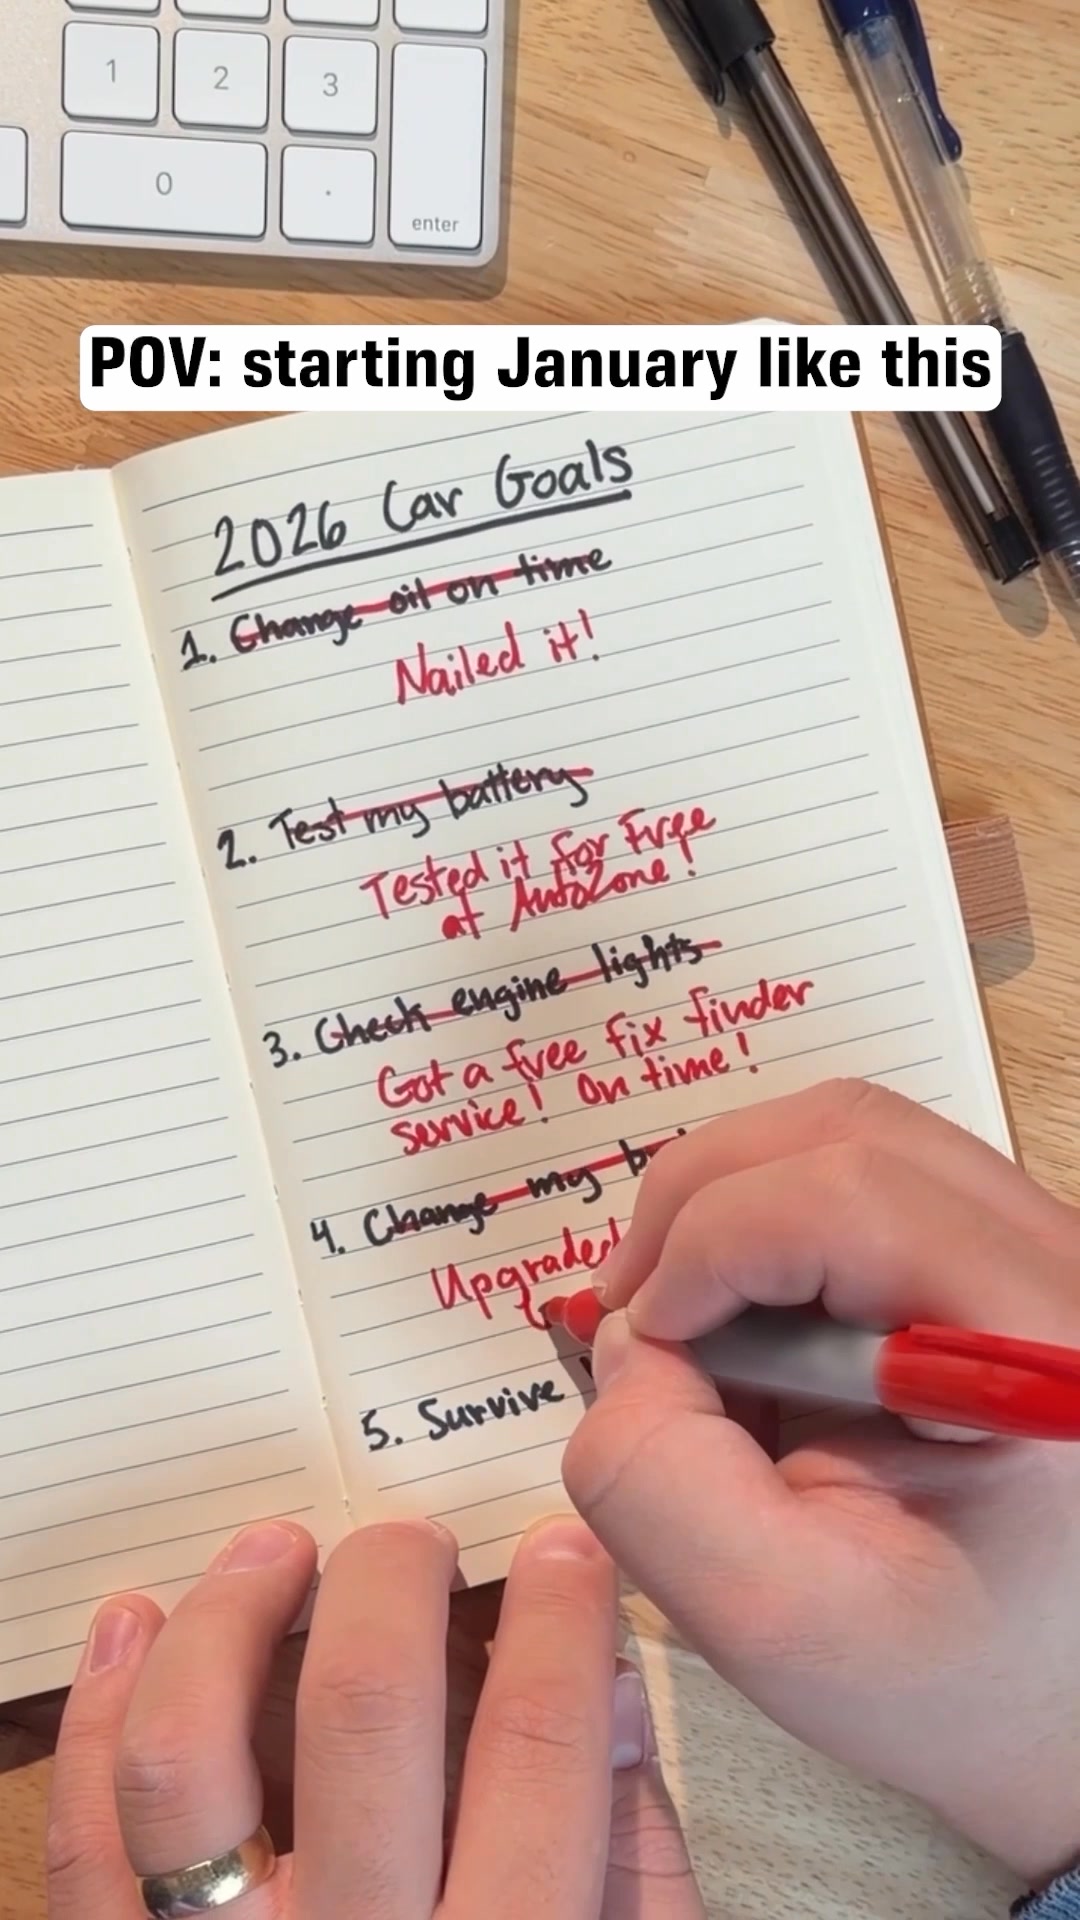 1 2 3
0 .
enter
POV: starting January like this
2026 Car Goals
1. Change oil on time
Nailed it!
2. Test my battery
Tested it for Free
at AutoZone!
3. Check engine lights
Got a free fix finder
service! On time!
4. Change my
Upgraded
5. Survive